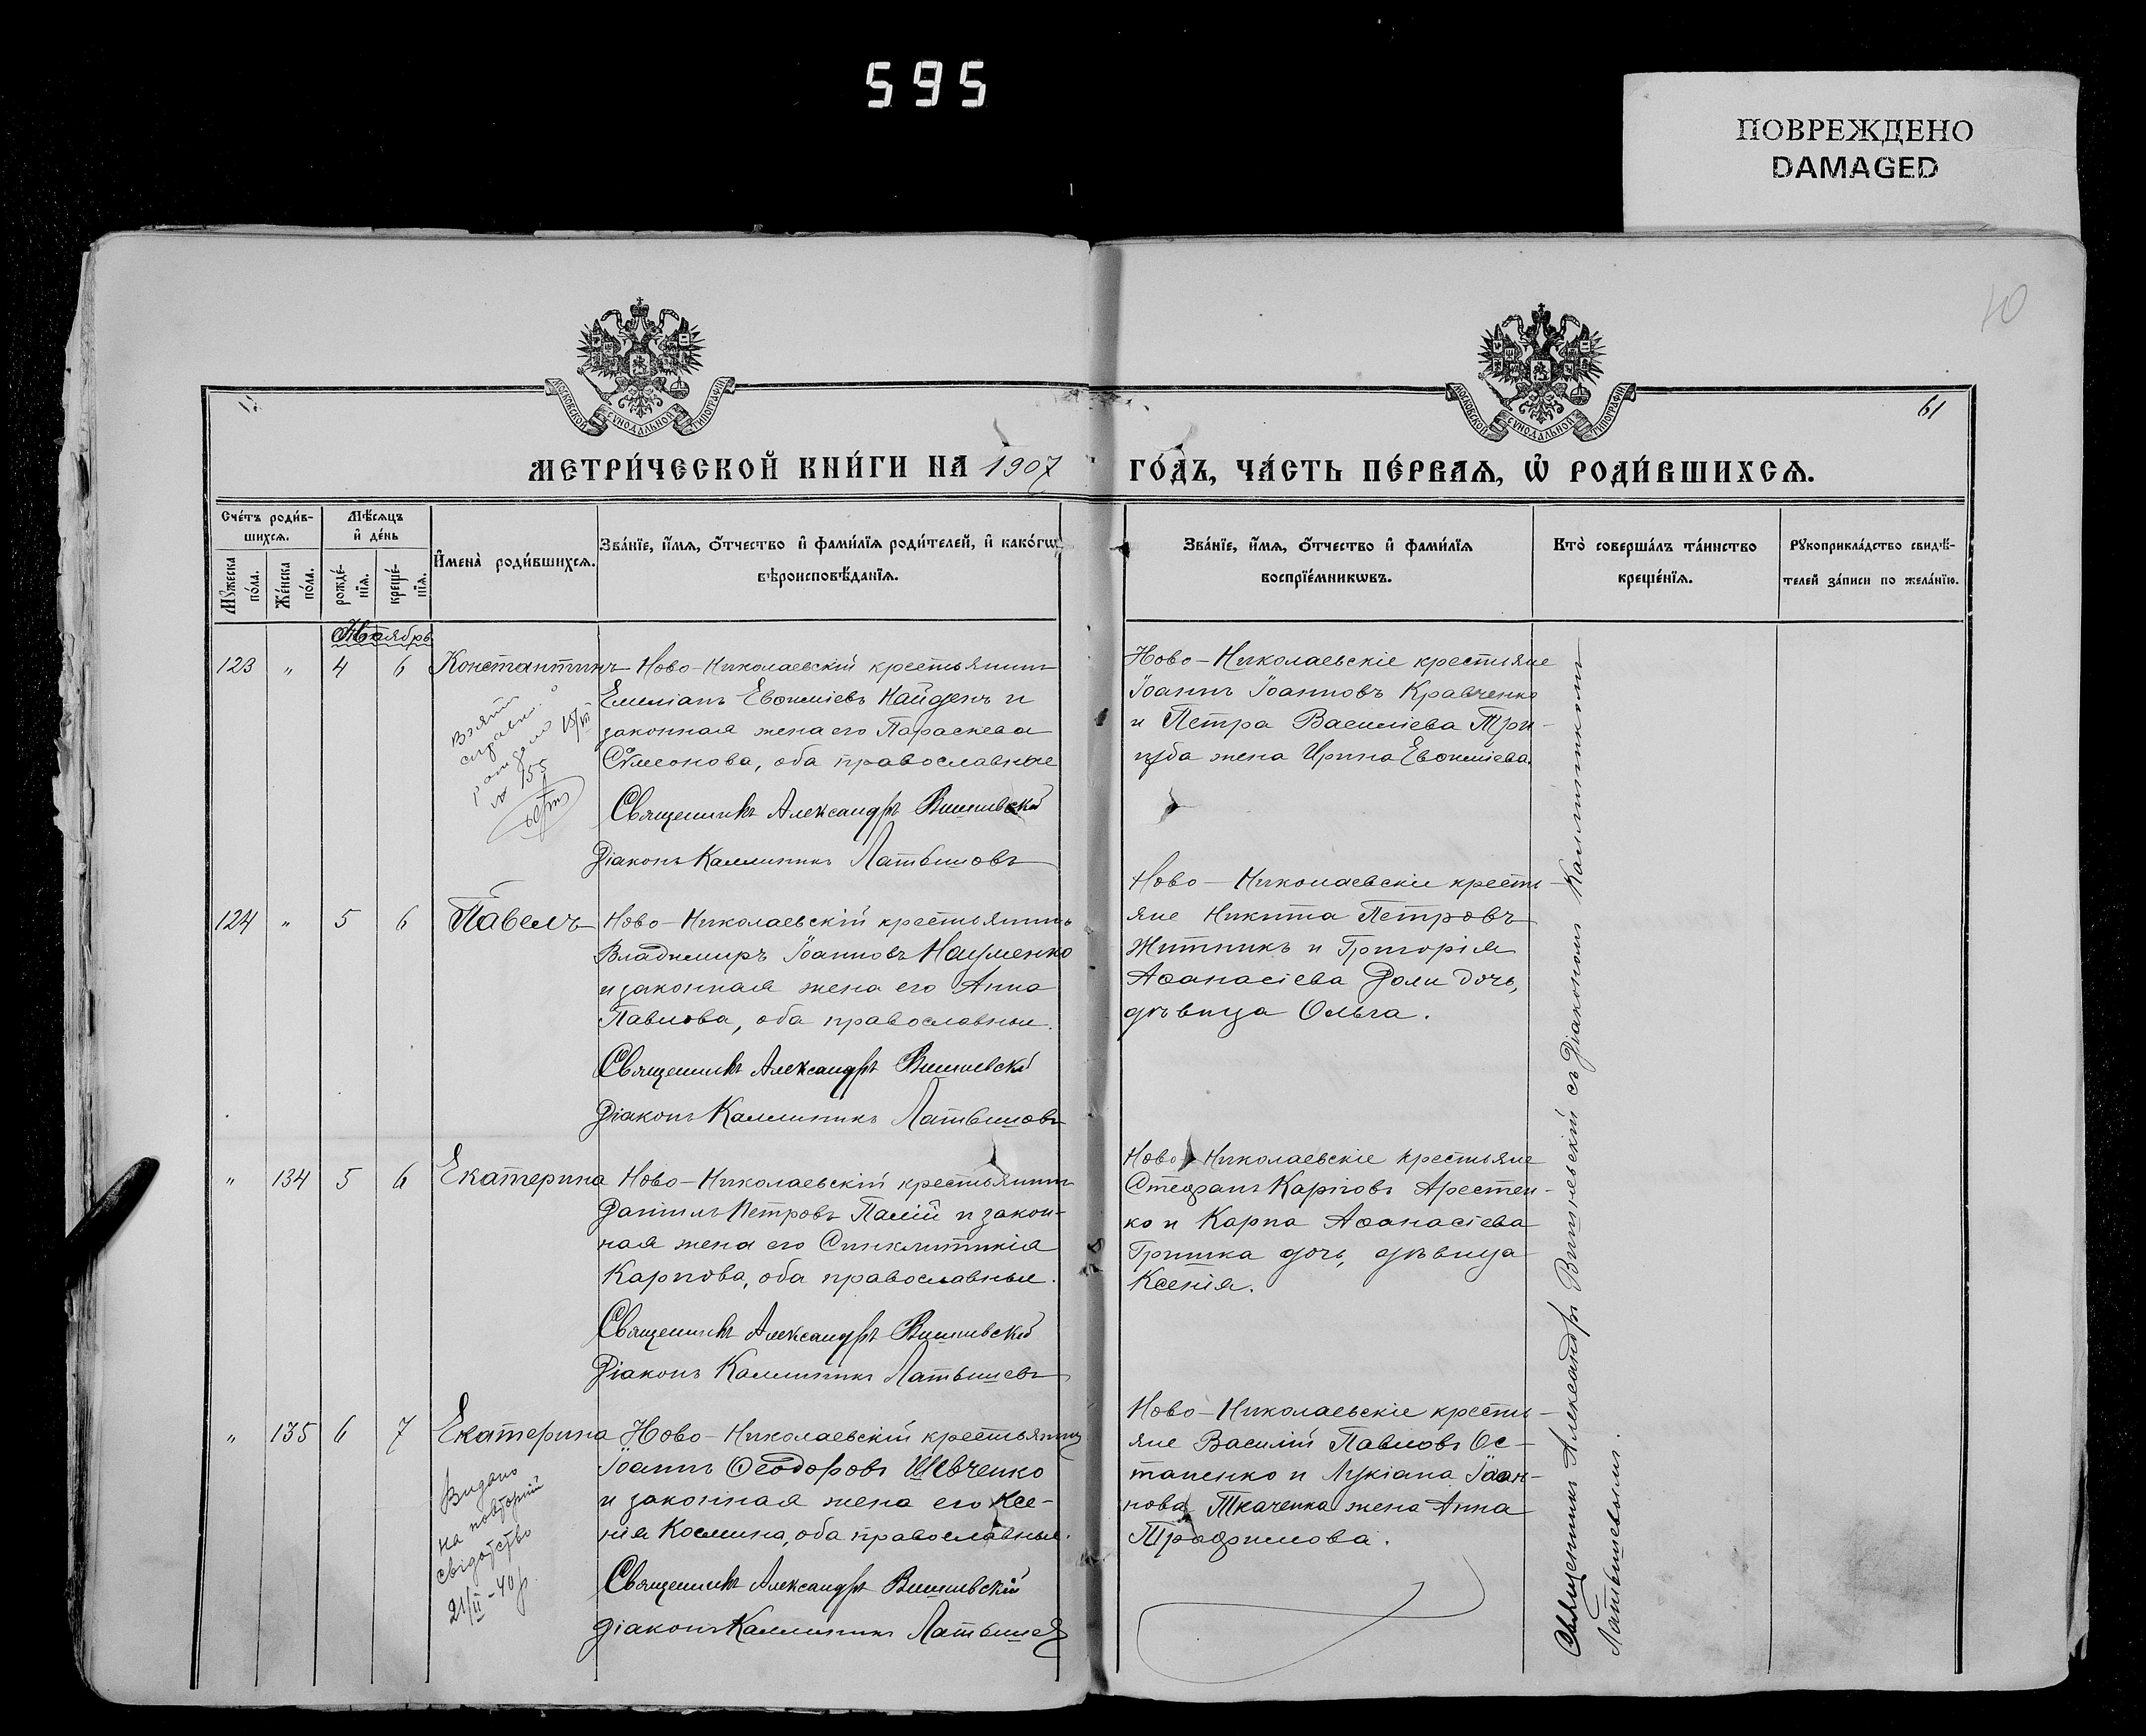 595
ПОВРЕЖДЕНО
DAMAGED
40
61
МОСКОВСКОЙ СУНОДАЛЬНОЙ ТИПОГРАФІИ
МОСКОВСКОЙ СУНОДАЛЬНОЙ ТИПОГРАФІИ
МЕТРИ́ЧЕСКОЙ КНИ́ГИ НА 1907 ГО́ДЪ, ЧА́СТЬ ПЕ́РВАЯ, Ѡ҆ РОДИ́ВШИХСЯ.
Сче́тъ роди́вшихся.
Мꙋ́жеска по́ла.
Же́нска по́ла.
Мѣ́сяцъ и҆ де́нь
рожде́нїя.
креще́нїя.
И҆мена̀ роди́вшихся.
Зва́нїе, и҆́мя, ѻ҆́тчество и҆ фами́лїя роди́телей, и҆ како́гѡ
вѣроисповѣ́данїя.
Зва́нїе, и҆́мя, ѻ҆́тчество и҆ фами́лїя
воспрїе́мникѡвъ.
Кто̀ соверша́лъ та́инство
креще́нїя.
Рꙋкоприкла́дство свидѣ́-
телей за́писи по жела́нїю.
Ноябрь
123 " 4 6 Константинъ
Ново-Николаевскій крестьянинъ
Емиліанъ Евѳиміевъ Найденъ и
законная жена его Параскева
Сѵмеонова, оба православные
Священникъ Александръ Вишневскій
Діаконъ Каллиникъ Латышовъ
Ново-Николаевскіе крестьяне
Іоаннъ Іоанновъ Кравченко
и Петра Василіева Три-
губа жена Ирина Евѳиміева.
155
124 " 5 6 Павелъ
Ново-Николаевскій крестьянинъ
Владимиръ Іоанновъ Науменко
и законная жена его Анна
Павлова, оба православные.
Священникъ Александръ Вишневскій
Діаконъ Каллиникъ Латышовъ
Ново-Николаевскіе крестья-
яне Никита Петровъ
Житникъ и Григорія
Аѳанасіева Доли дочь,
дѣвица Ольга.
" 134 5 6 Екатерина
Ново-Николаевскій крестьянинъ
Даніилъ Петровъ Палій и закон-
ная жена его Синклитикія
Карпова, оба православные.
Священникъ Александръ Вишневскій
Діаконъ Каллиникъ Латышевъ
Ново-Николаевскіе крестьяне
Стефанъ Карповъ Арестен-
ко и Карпа Аѳанасіева
Гришка дочь, дѣвица
Ксенія.
" 135 6 7 Екатерина
Ново-Николаевскій крестьянинъ
Іоаннъ Ѳеодоровъ Шевченко
и законная жена его Ксе-
нія Космина, оба православные.
Священникъ Александръ Вишневскій
Діаконъ Каллиникъ Латышев
Видано
на повторній
свідоцтво
21/II-40р.
Ново-Николаевскіе кресть-
яне Василій Павловъ Ос-
тапенко и Лукіана Іоан-
нова Ткаченка жена Анна
Трофимова.
Священникъ Александръ Вишневскій съ Діакономъ Каллиникомъ
Латышевымъ.